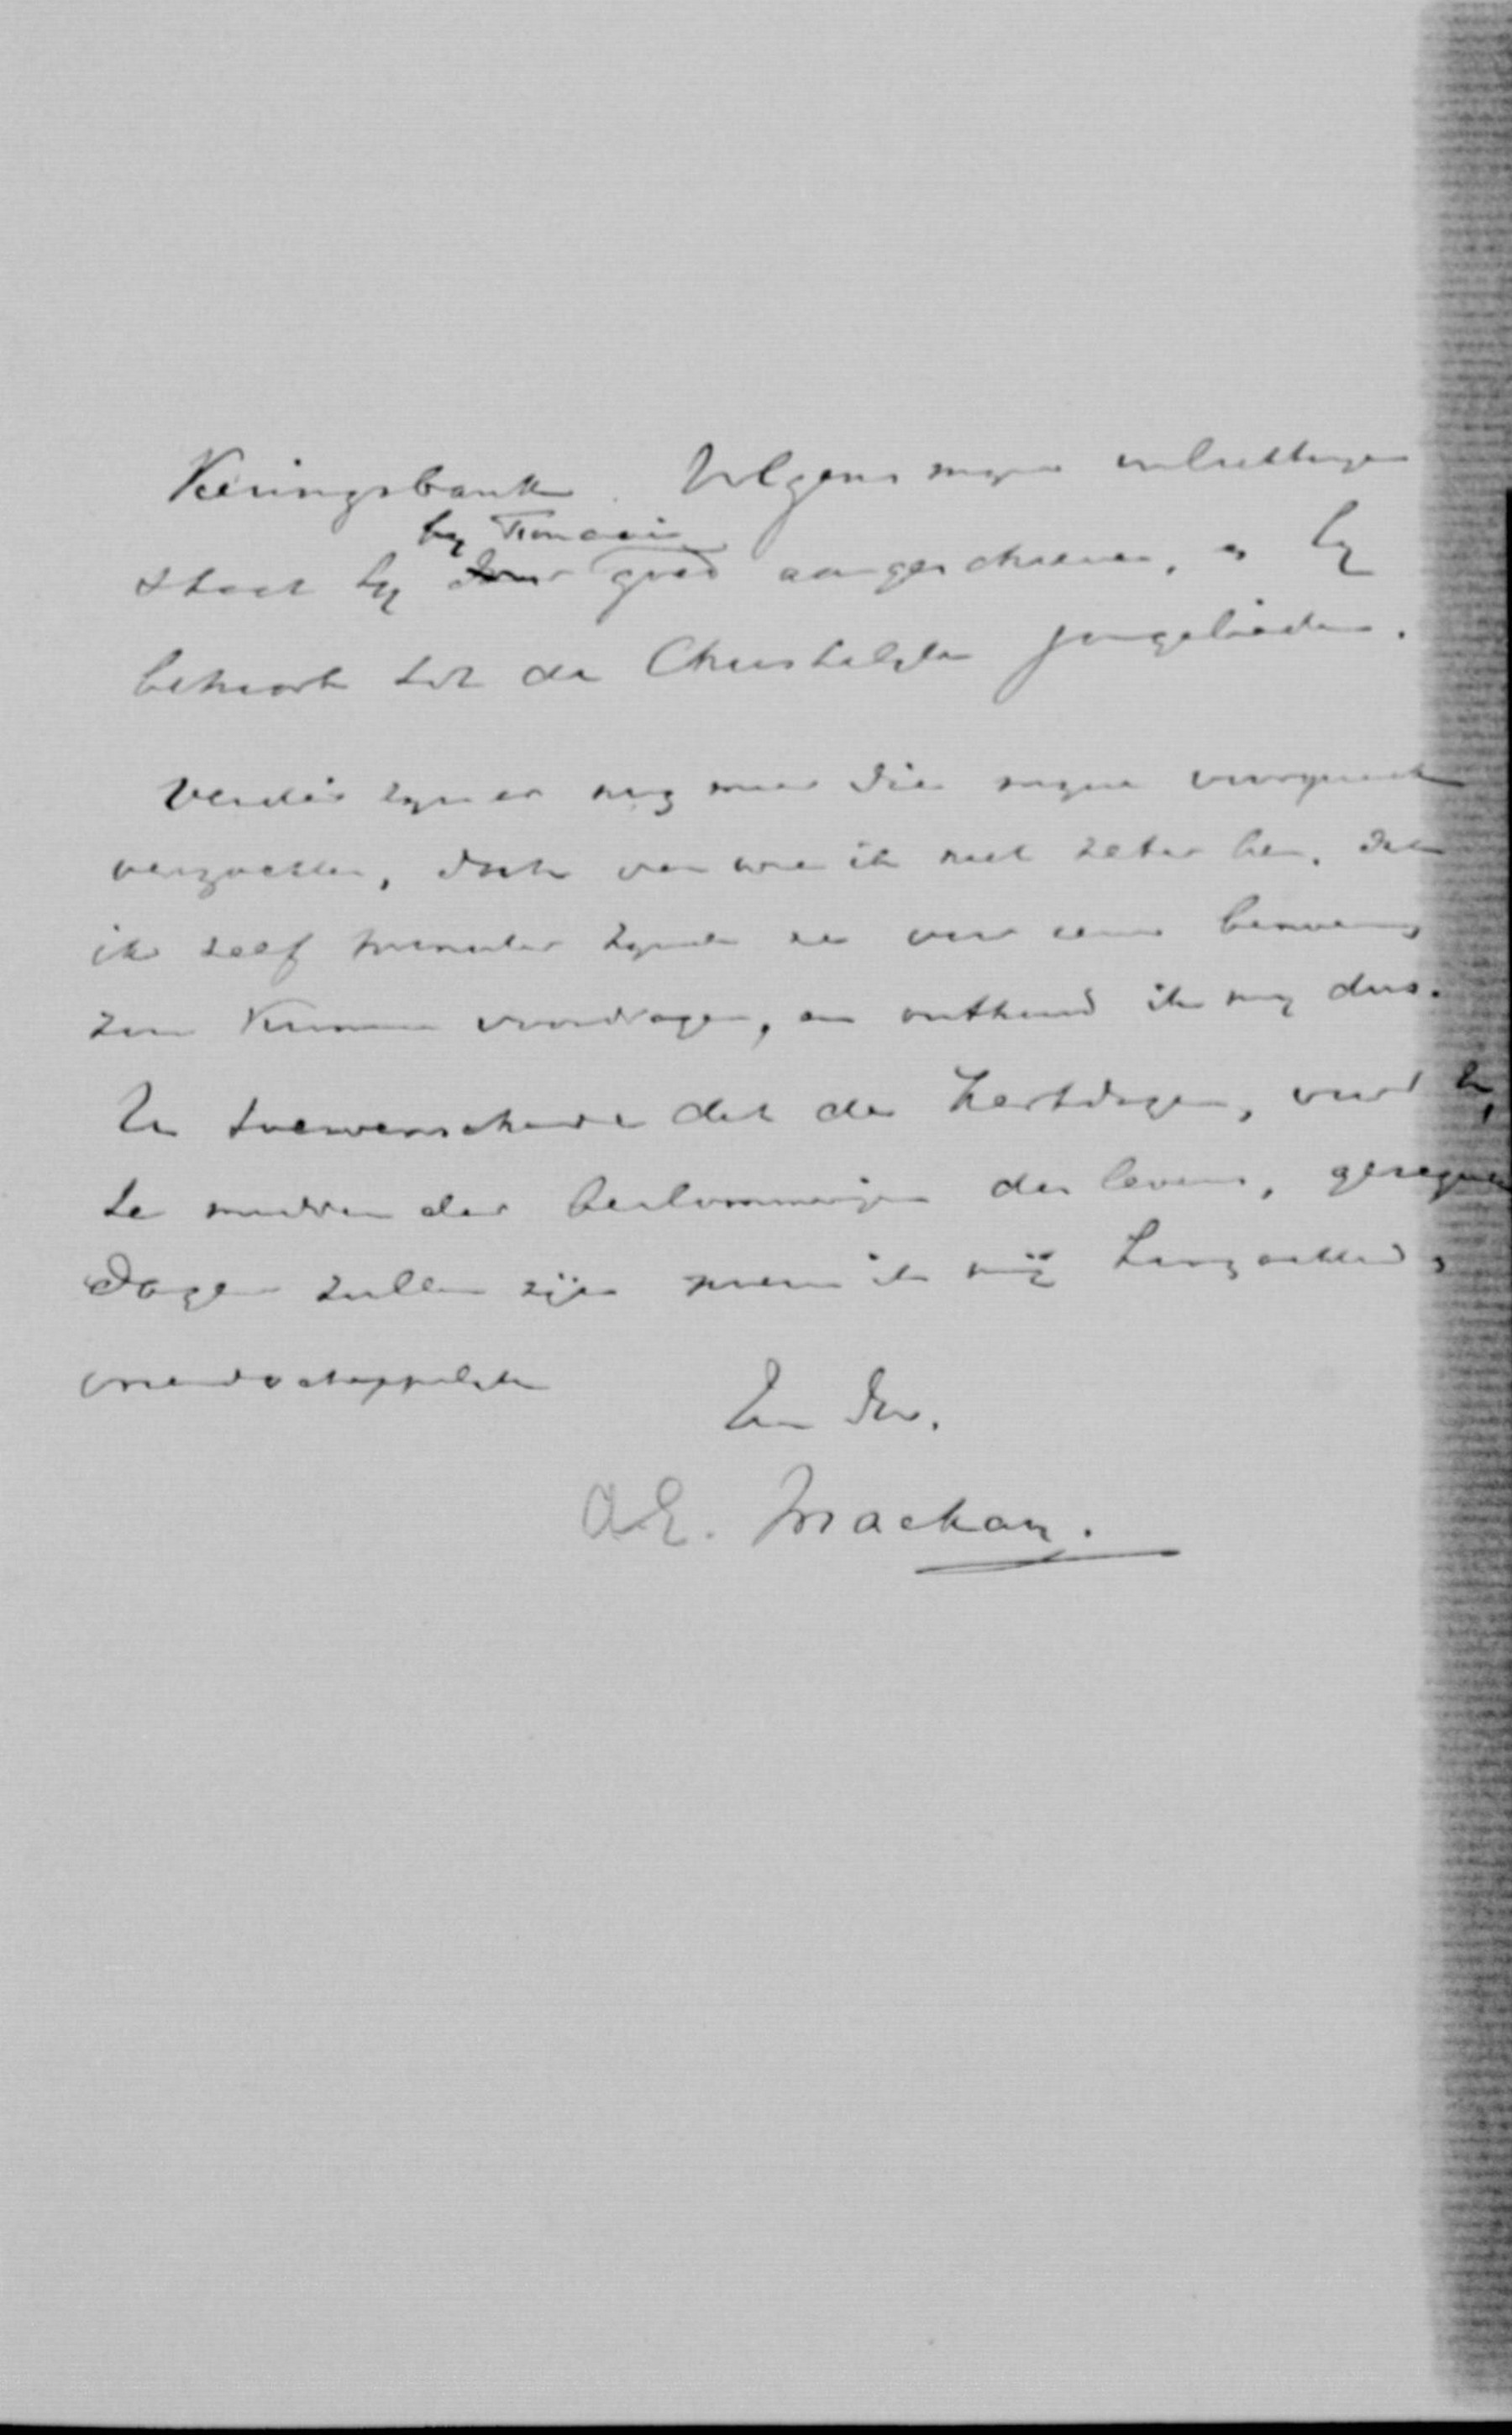 Keuringsbank. Volgens mijne inlichtingen
by Financiën
staat hy goed aangeschreven, en hy
behoort tot de Christelijke jongelieden.
Verder zyn er nog meer die myne voorspraak
verzochten, doch van wie ik niet zeker ben, dat
ik zelf minister zynde ze voor eene benoeming
zou kunnen voordragen, en onthoud ik my dus.
U toewenschende dat de Kerstdagen, voor U,
te midden der beslommeringen des levens, gezegende
dagen zullen zijn noem ik mij hoogachtend,
vriendschappelijk
Uw Dw.
A.E. Mackay.